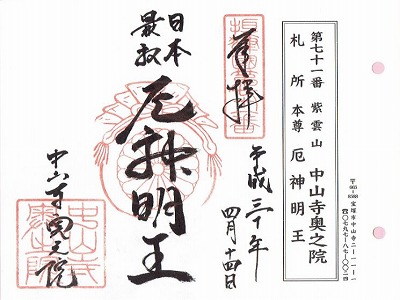 第七十一番 紫雲山 中山寺奥之院
札所本尊 厄神明王
〒665-8588 宝塚市中山寺二ー一一ー一
☎〇七九七ー八七ー〇〇二四
奉拝
平成三十年
四月十四日
日本
最初
厄神明王
中山寺奥之院
中山寺
奥之院